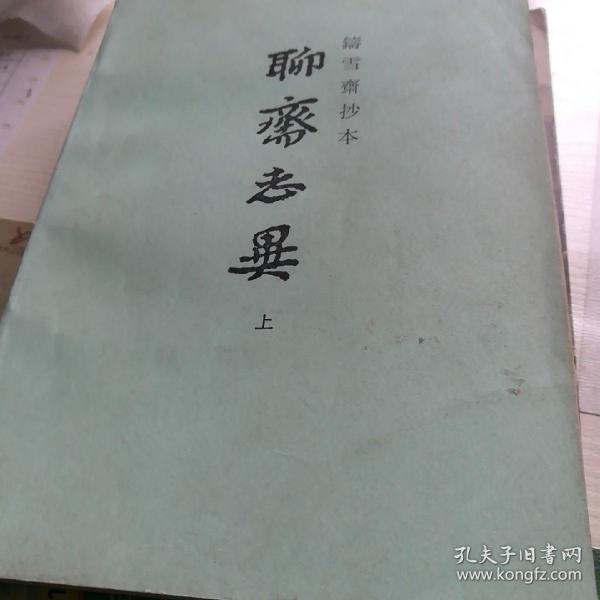 鑄雪齋抄本
聊齋志異
上
孔夫子旧书网
www.kongfz.com